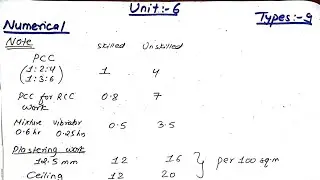 Unit:-6
Types:-9
Numerical
Note skilled Unskilled
PCC
(1:2:4) 1 4
(1:3:6)
PCC for RCC 0.8 7
work
Mixture Vibrator 0.5 3.5
0.6 hr 0.25 hr
Plastering work
12.5 mm 12 16 } per 100 sq.m
Ceiling 12 20